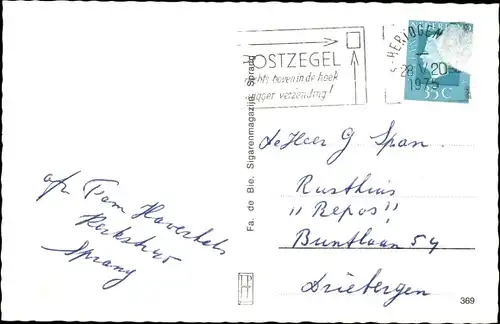 POSTZEGEL
rechts boven in de hoek
vlugger verzending!
'S-HERTOGEN
28.V.20
1975
NEDERLAND
35 C
De Heer G Span
Rusthuis
"Repos"
Buntlaan 54
Driebergen
afz Fam Haverhals
Kerkstr 45
Sprang
Fa. de Bie. Sigarenmagazijn Sprang
369